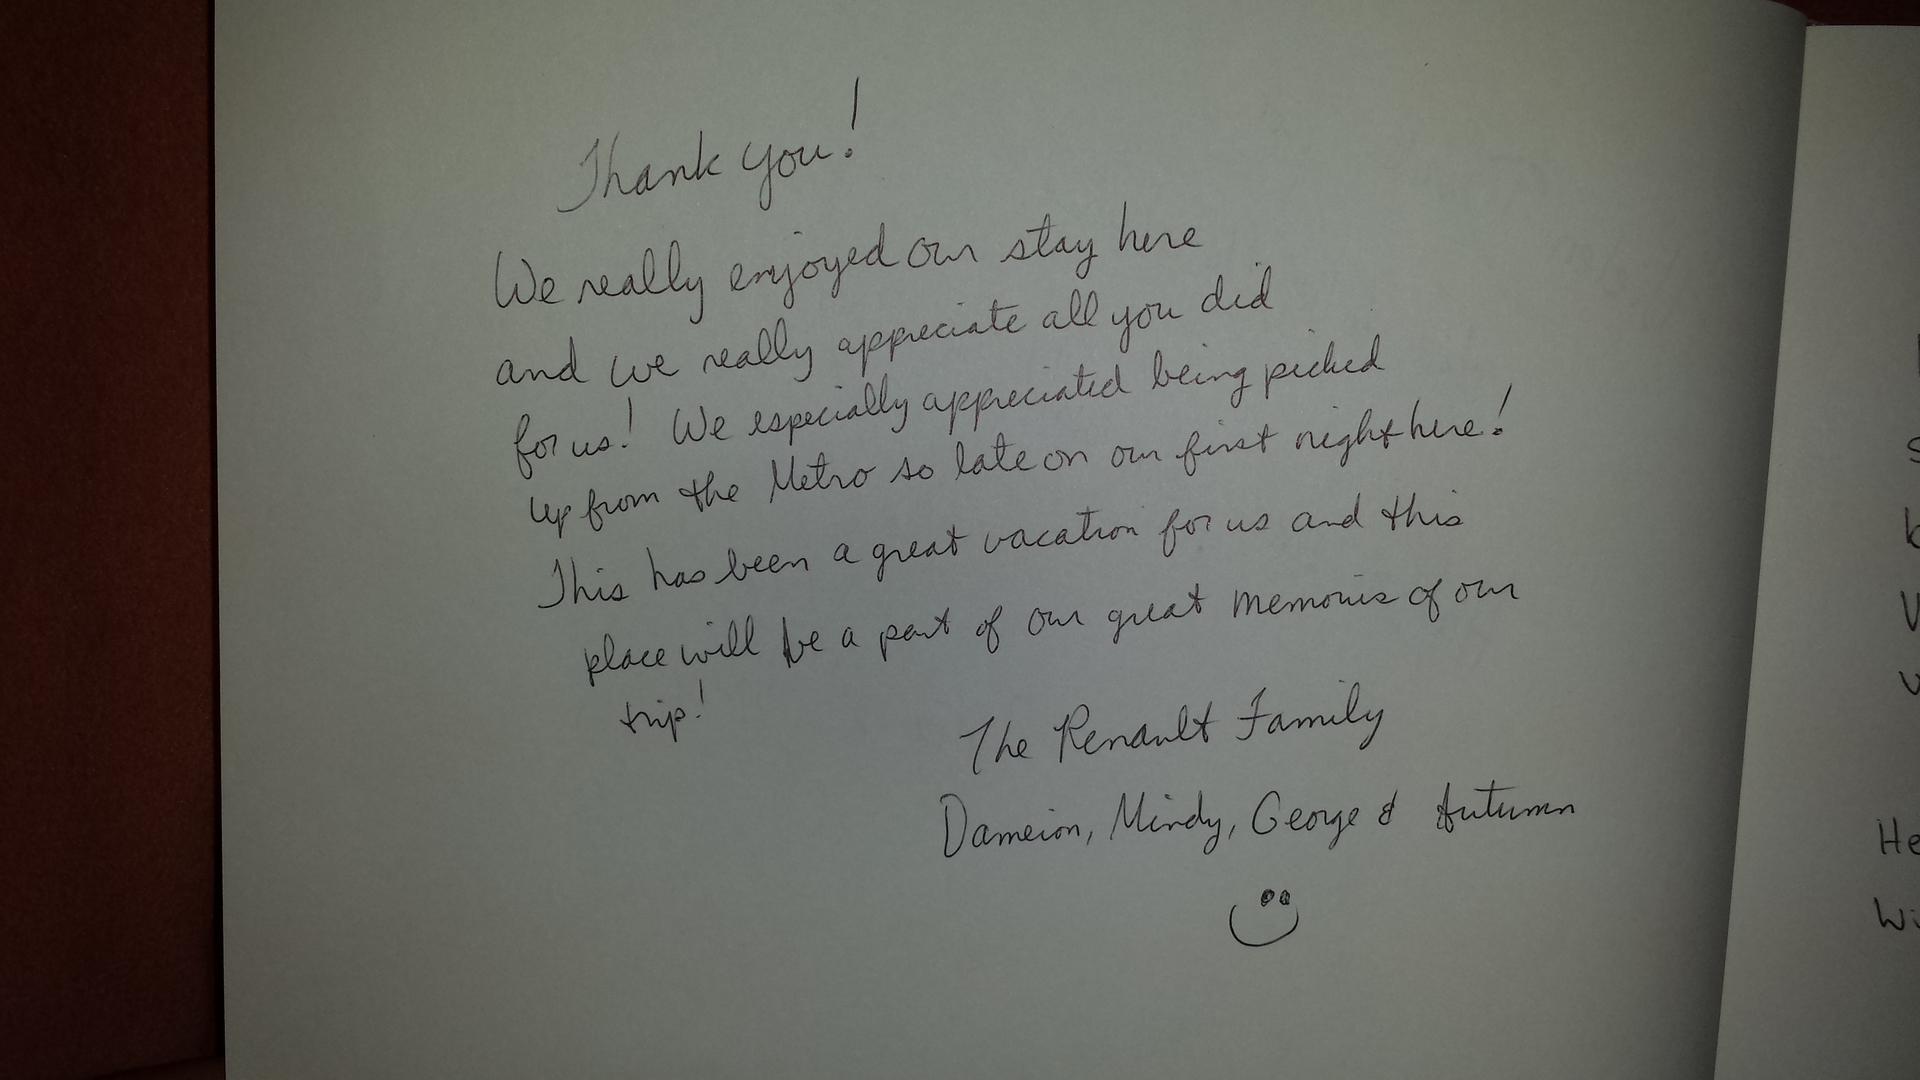 Thank you!
We really enjoyed our stay here
and we really appreciate all you did
for us! We especially appreciated being picked
up from the Metro so late on our first night here!
This has been a great vacation for us and this
place will be a part of our great memories of our
trip!
The Renault Family
Dameion, Mindy, George & Autumn
He
Wi